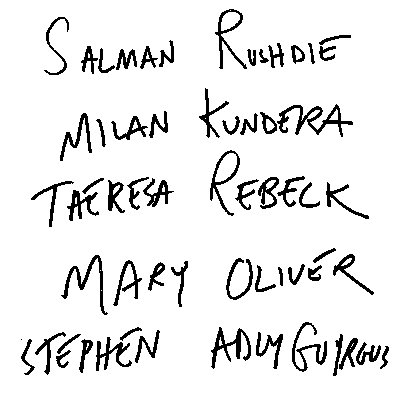 SALMAN RUSHDIE
MILAN KUNDERA
TAERESA REBECK
MARY OLIVER
STEPHEN ADLY GUYRGUS